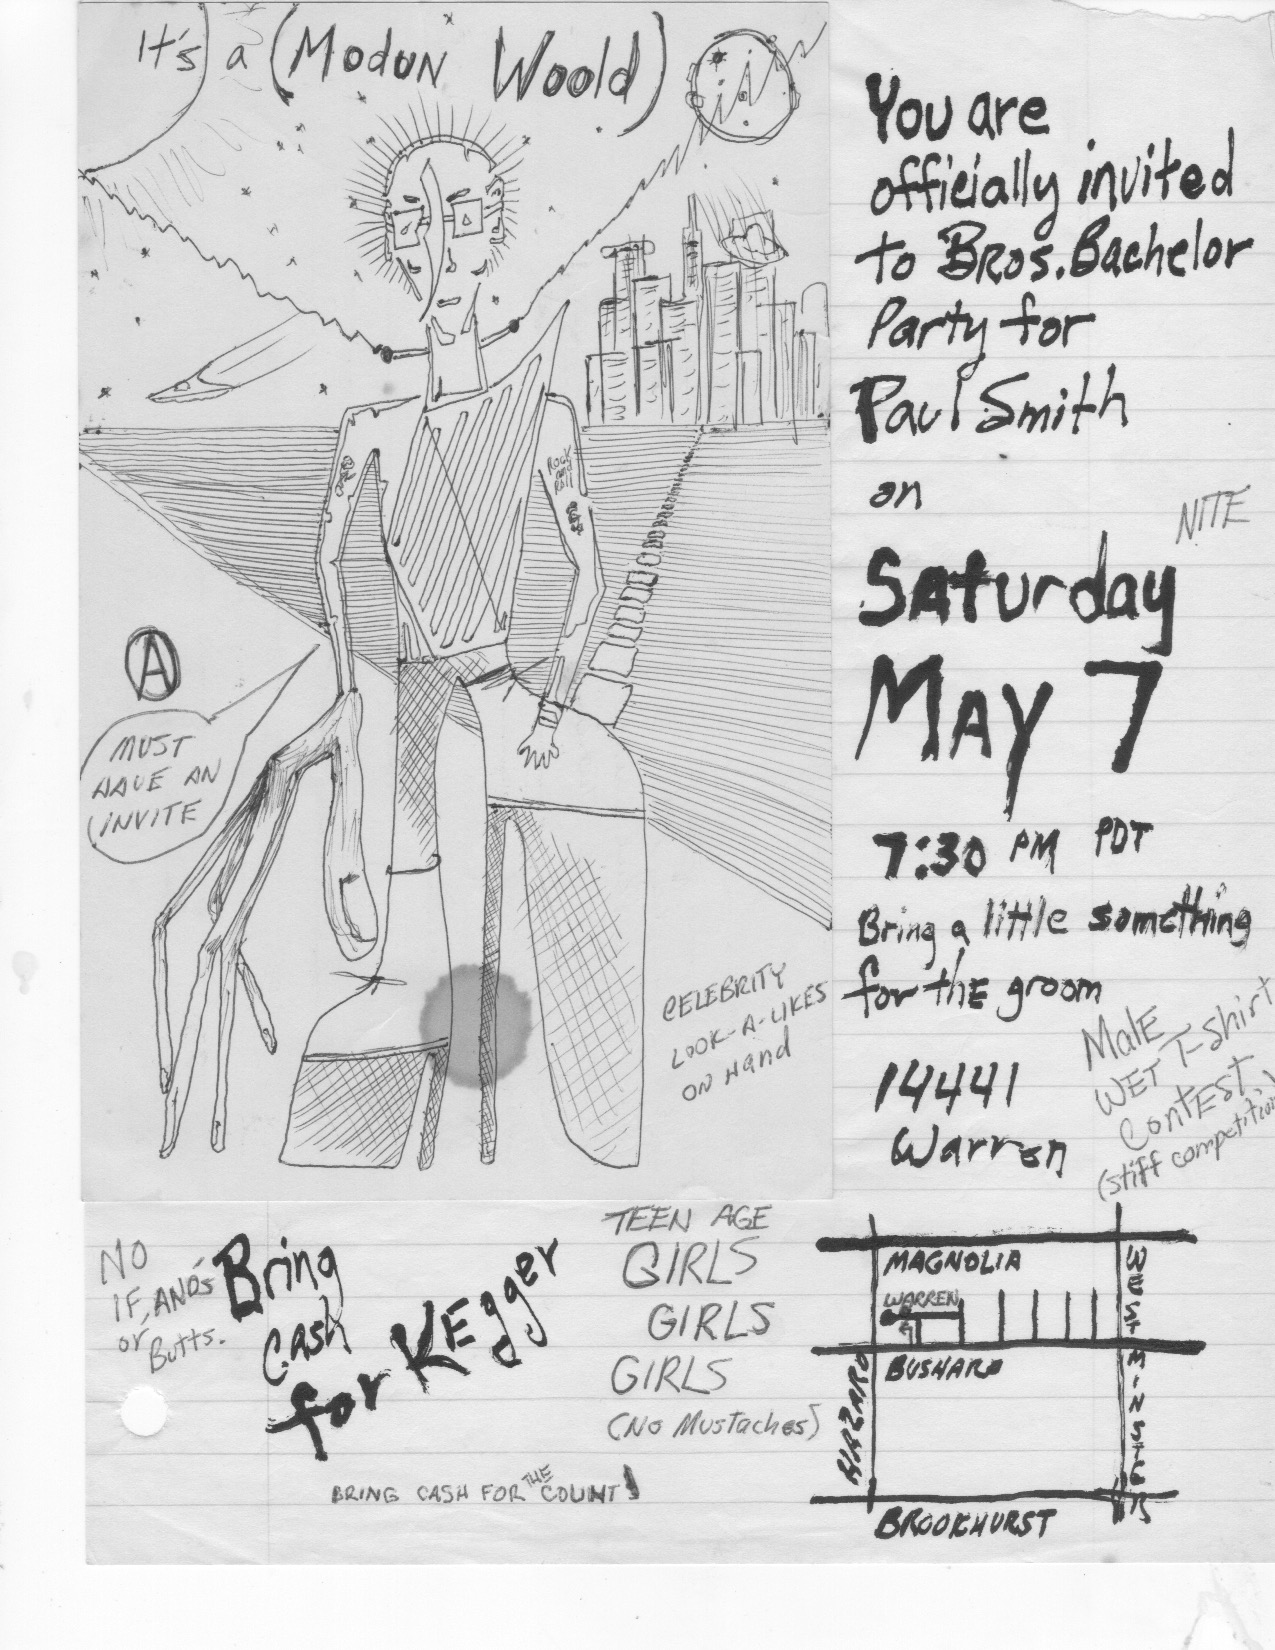 It's a (Modun Woold)
You are
officially invited
to Bros. Bachelor
Party for
Paul Smith
on
NITE
Saturday
May 7
7:30 PM PDT
Bring a little something
for the groom
14441
Warren
MalE
WET T-shirt
ContEST
(stiff competition)
ROCK
AND
ROLL
A
MUST
HAVE AN
INVITE
CELEBRITY
LOOK-A-LIKES
ON Hand
NO
IF, AND'S
or Butts.
Bring
Cash
for KEgger
TEEN AGE
GIRLS
GIRLS
GIRLS
(No Mustaches)
BRING CASH FOR THE COUNT!
MAGNOLIA
WARREN
BUSHARD
HAZARD
WESTMINSTER
BROOKHURST